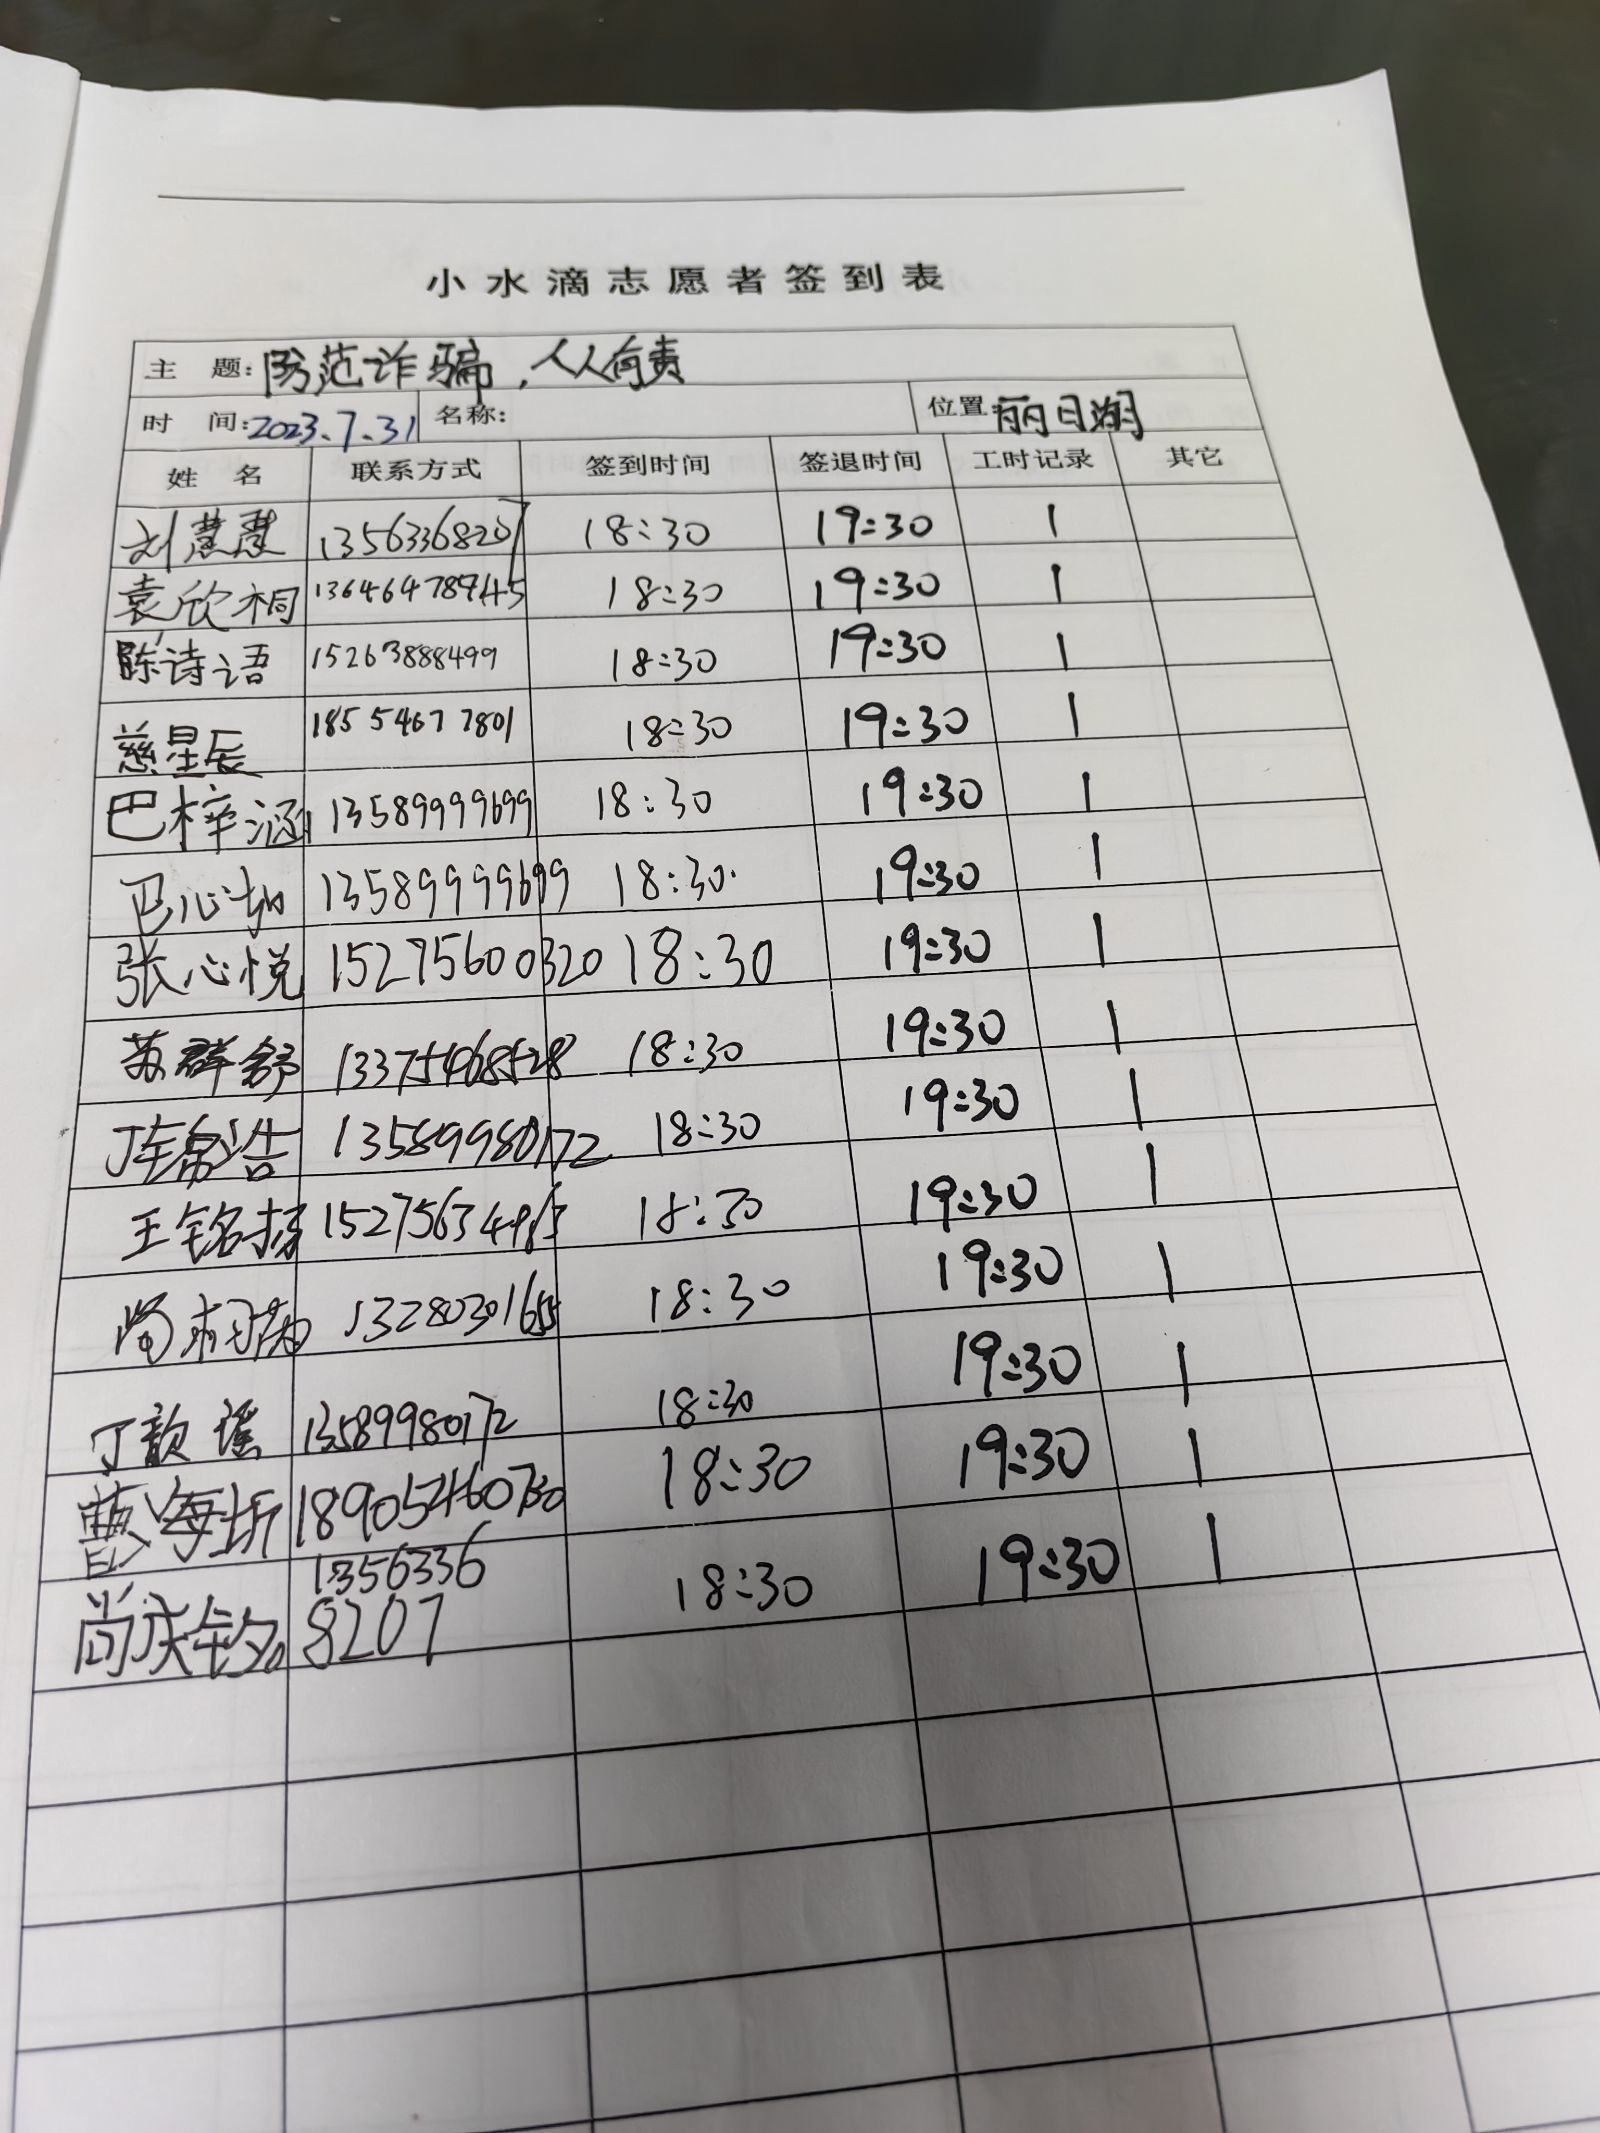 小水滴志愿者签到表
主 题：防范诈骗，人人有责
时 间：2023.7.31 名称： 位置：丽日湖
姓 名 联系方式 签到时间 签退时间 工时记录 其它
刘慧慧 13563368207 18:30 19:30 1
袁欣桐 18:30 19:30 1
陈诗语 15263888499 18:30 19:30 1
慈星辰 18554677801 18:30 19:30 1
巴梓涵 13589999699 18:30 19:30 1
巴心 13589999699 18:30 19:30 1
张心悦 15275600320 18:30 19:30 1
苏群舒 13375468528 18:30 19:30 1
13589980172 18:30 19:30 1
王铭扬 18:30 19:30 1
18:30 19:30 1
丁歆谣 13589980172 18:30 19:30 1
曹海圻 18:30 19:30 1
尚庆 13563368207 18:30 19:30 1